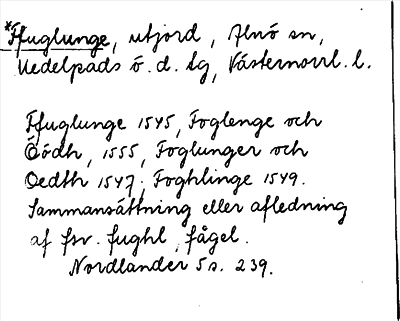 *Ffuglunge, utjord, Alnö sn,
Medelpads ö. d. tg, Västernorrl. l.
Ffuglunge 1545, Foglenge och
Öödh, 1555, Foglunger och
Oedth 1547; Foghlinge 1549.
Sammansättning eller afledning
af fsv. fughl, fågel.
Nordlander 5 s. 239.